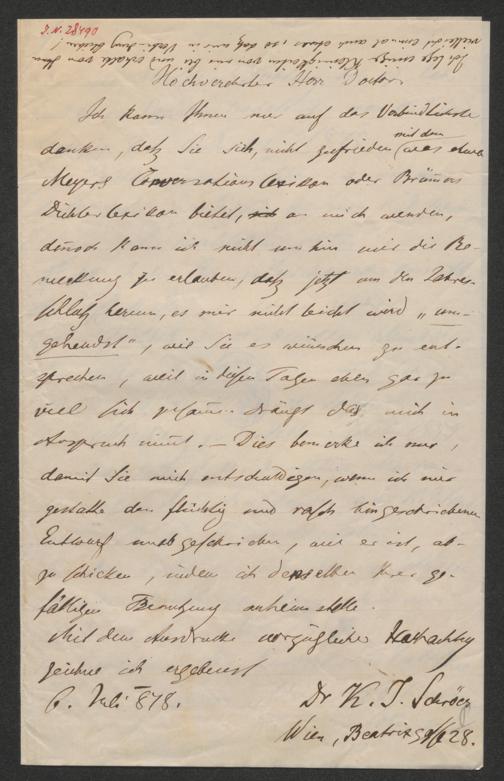 I.N. 28490
Ich lege einige Kleinigkeiten von mir bei und
vielleicht einmal auch etwas, so daß wir in Verbindung bleiben!
Hochverehrter Herr Doctor.
Ich kann Ihnen nur auf das Verbindlichste
danken, daß Sie sich, nicht zufrieden mit dem was etwa
Meyers Conversationslexikon oder Brümmers
Dichterlexikon bietet, an mich wenden,
dennoch kann ich nicht umhin mir die Be-
merkung zu erlauben, daß jetzt um den Jahres-
schluß herum, es mir nicht leicht wird „um-
gehendst", wie Sie es wünschen zu ent-
sprechen, weil in diesen Tagen eben gar zu
viel sich zusammen drängt das mich in
Anspruch nimmt. — Dies bemerke ich nur,
damit Sie mich entschuldigen, wenn ich mir
gestatte den flüchtig und rasch hingeschriebenen
Entwurf unabgeschrieben, wie er ist, ab-
zu schicken, indem ich denselben Ihrer ge-
fälligen Benutzung anheim stelle.
Mit dem Ausdrucke vorzüglicher Hochachtung
zeichne ich ergebenst
6. Juli 878.
Dr K. J. Schröer
Wien, Beatrixgasse 28.